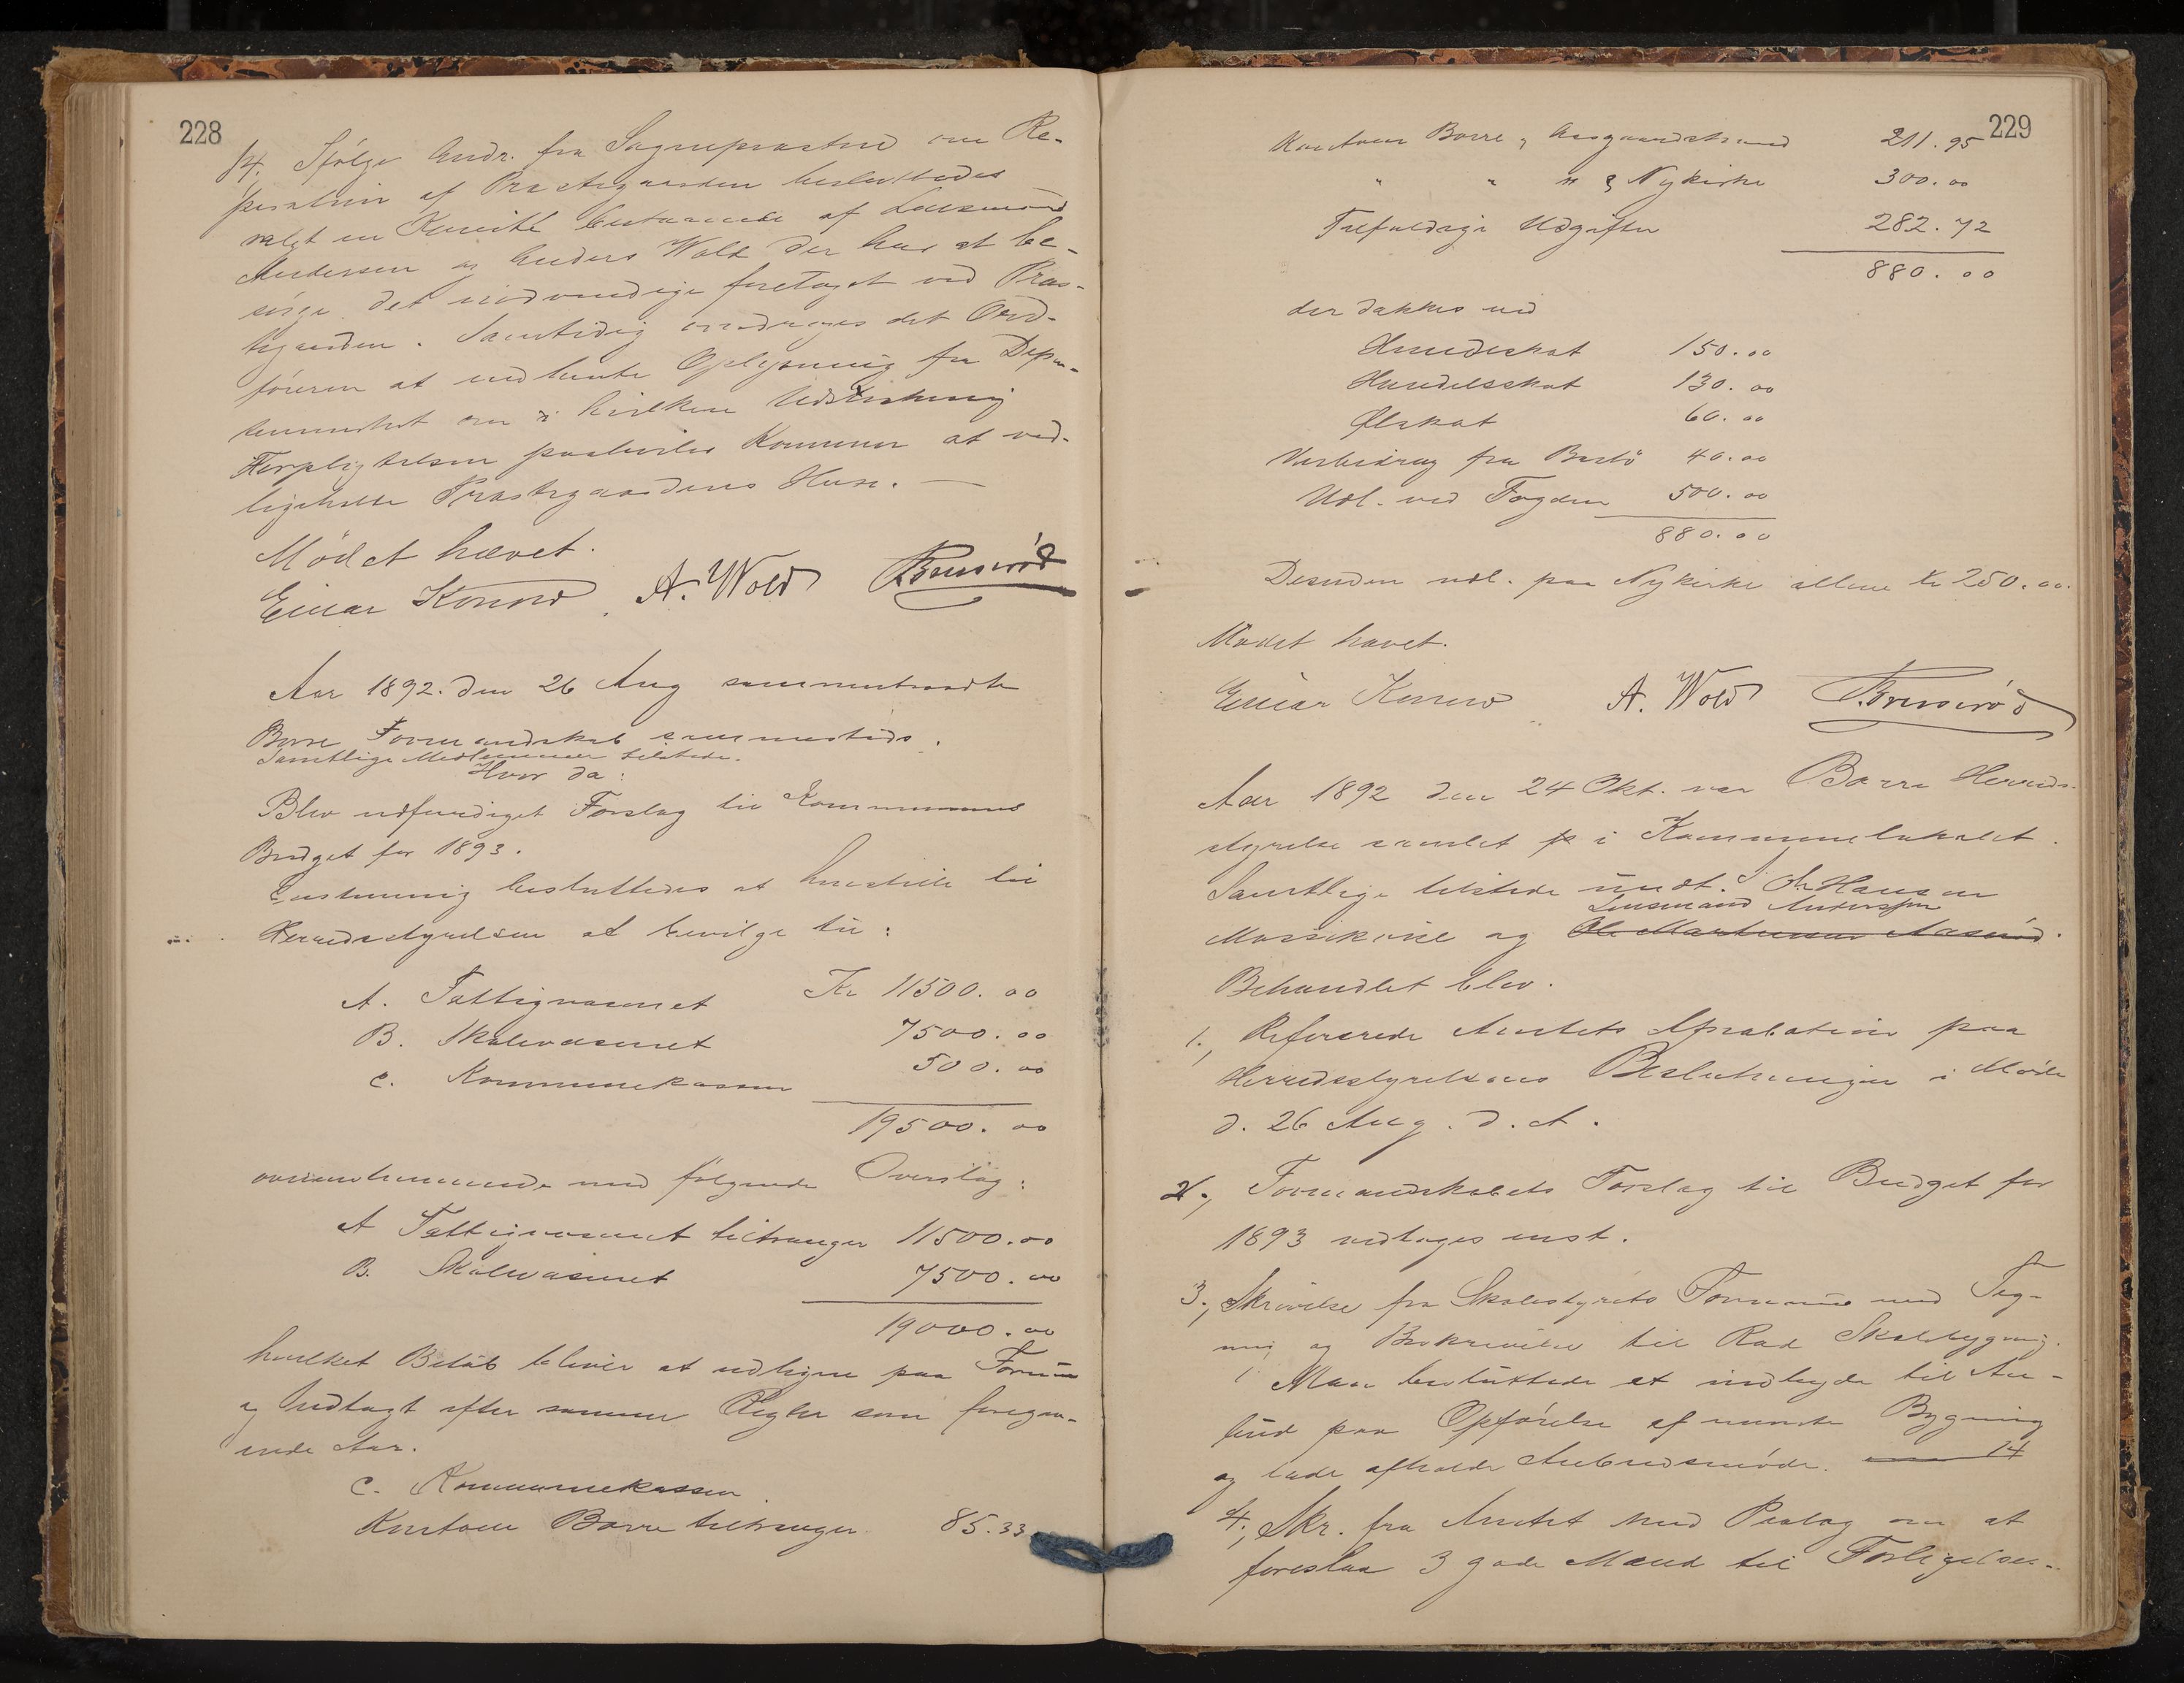 228
14, Ifølge Andr. fra Sogneprasten om Re-
peration af Præstegaarden besluttedes
valgt en Komite bestaaende af Lensmand
Andersen og Anders Wold der har at be-
sørge det nødvendige foretaget ved Præs-
tegaarden. Samtidig anmodes det Ord-
føreren at indhente Oplysning fra Depar-
tementet om i hvilken Udstrækning
Forpligtelsen paahviler Kommunen at ved-
ligeholde Præstegaardens Huse. —
Mødet hævet.
Einar Konow A. Wold
Aar 1892. den 26 Aug sammentraadte
Borre Formandskab sammesteds.
Samtlige Medlemmer tilstede.
Hvor da:
Blev udfærdiget Forslag til Kommunens
Budget for 1893.
Enstemmig besluttedes at henstille til
Herredsstyrelsen at bevilge til:
A. Fattigvæsenet Kr 11500.00
B. Skolevæsenet 7500.00
C. Kommunekassen 500.00
19500.00
overensstemmende med følgende Overslag:
A Fattigvæsenet tiltrænger 11500.00
B. Skolevæsenet 7500.00
19000.00
hvilket Beløb bliver at udligne paa Formue
og Indtægt efter samme Regler som foregaa-
ende Aar.
C. Kommunekassen.
Kontoen Borre tiltrænger 85.33
229
Kontoen Borre & Aasgaardstrand 211.95
" " " & Nykirke 300.00
Tilfældige Udgifter 282.72
880.00
der dækkes ved
Hundeskat 150.00
Handelsskat 130.00
Ølskat 60.00
Veibidrag fra Bastø 40.00
Udl. ved Fogden 500.00
880.00
Desuden udl. paa Nykirke allene Kr 250.00.
Mødet hævet.
Einar Konow A. Wold
Aar 1892 den 24 Okt. var Borre Herreds-
styrelse samlet p i Kommunelokalet.
Samtlige tilstede undt. Hansen
Lensmand Andersen
og Ole Martinsen Aasrød.
Behandlet blev.
1., Refererede Amtets Aprobation paa
Herredsstyrelsens Beslutninger i Møde
d. 26 Aug. d. A.
2., Formandskabets Forslag til Budget for
1893 vedtoges enst.
3., Skrivelse fra Skolestyrets Formand med Teg-
ning og Beskrivelse til Rød Skolebygning.
Man besluttede at indbyde til An-
bud paa Opførelse af nævnte Bygning
og lade afholde Anbudsmøde. 14
4., Skr. fra Amtet med Pålæg om at
foreslaa 3 gode Mænd til Forligelses-